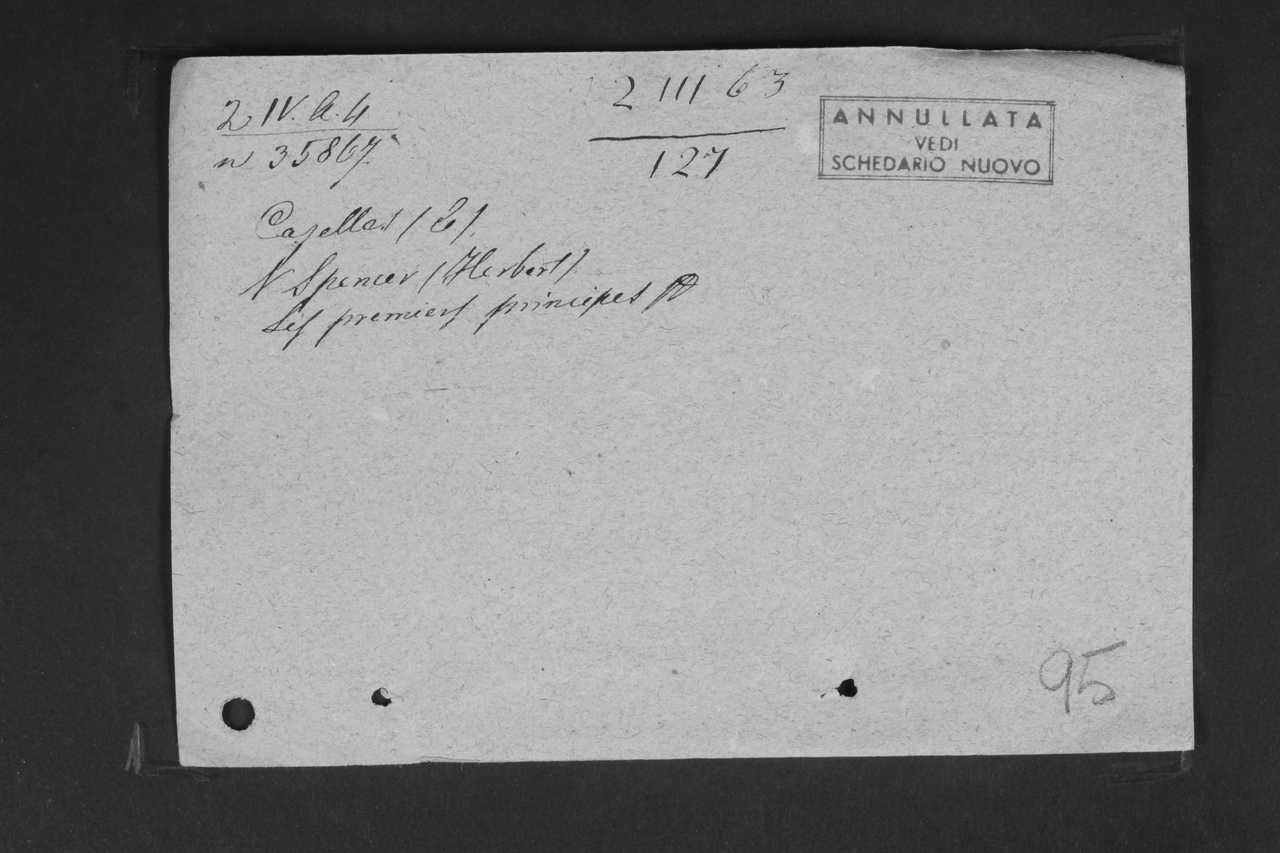 2 IV. A. 4
n 35867.
2 III 63
127
ANNULLATA
VEDI
SCHEDARIO NUOVO
Cazelles (E).
V Spencer (Herbert)
Les premiers principes
95